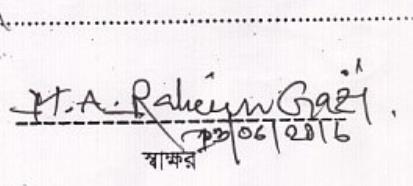 M.A. Raheem Gazi.
03/06/2016
স্বাক্ষর